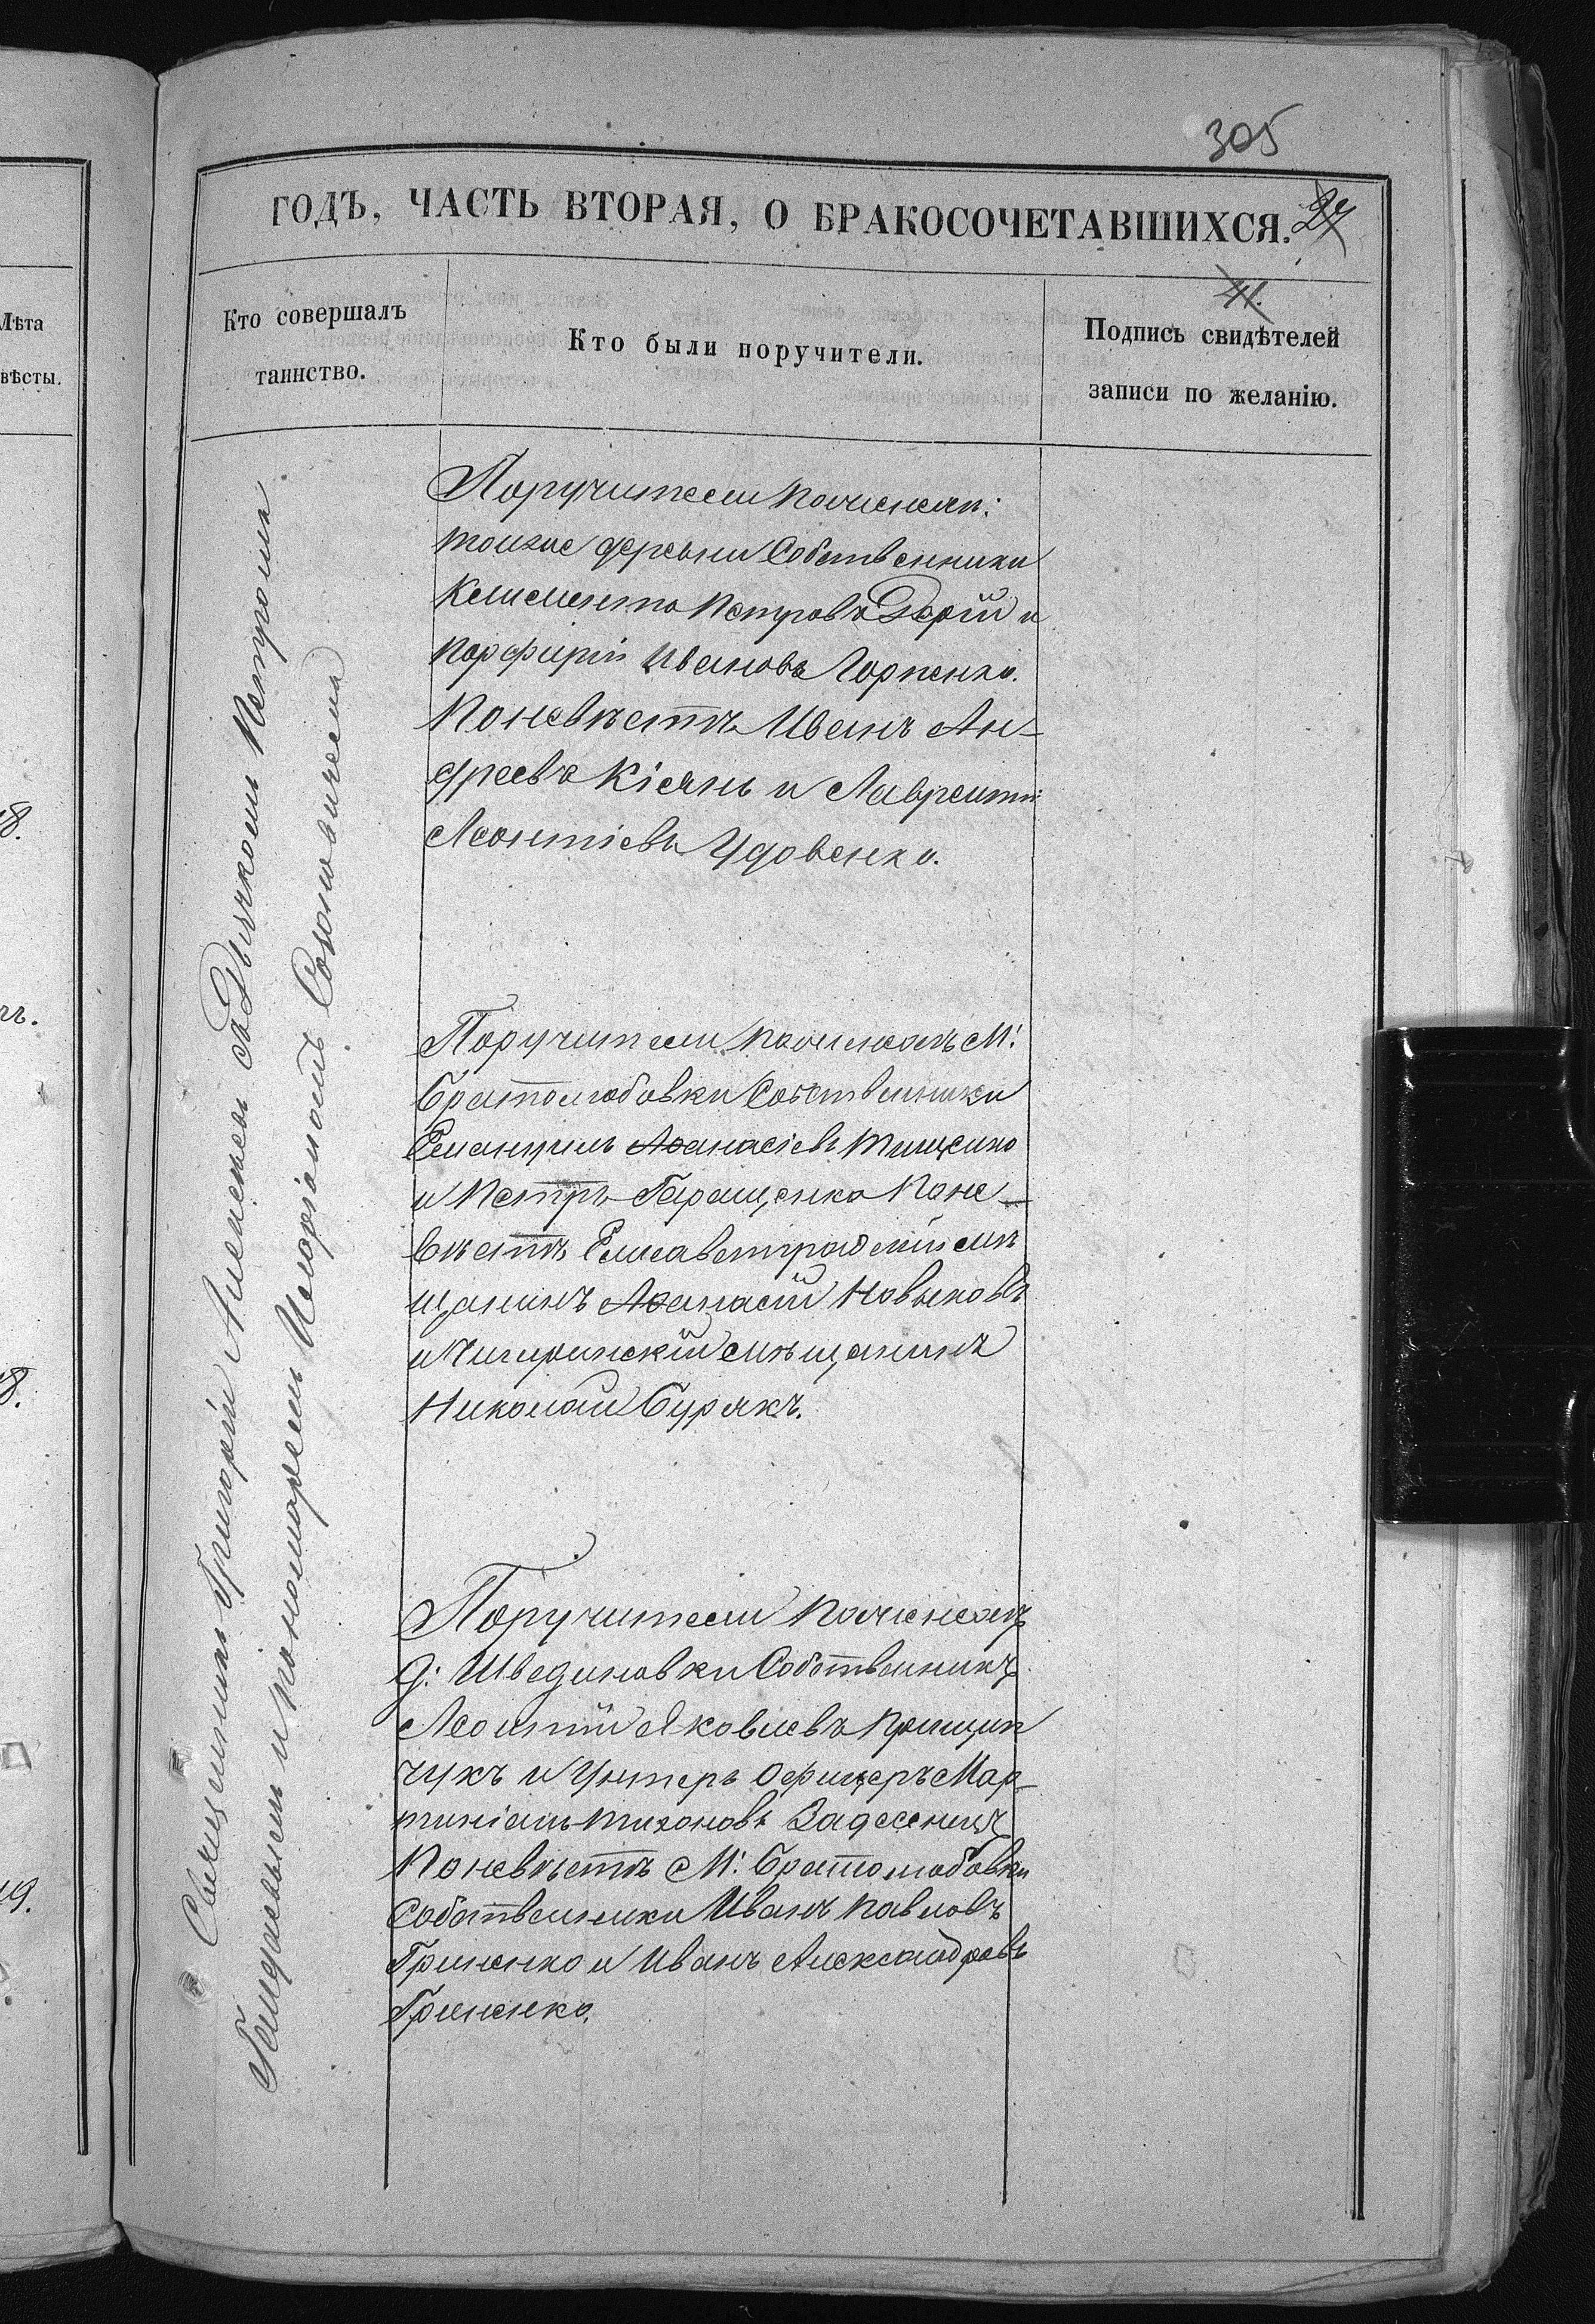 305
ГОДЪ, ЧАСТЬ ВТОРАЯ, О БРАКОСОЧЕТАВШИХСЯ.
27
41.
Лѣта
вѣсты.
Кто совершалъ
таинство.
Кто были поручители.
Подпись свидѣтелей
записи по желанію.
Священникъ Григорій съ Дьячкомъ
и пономаремъ
Поручители по женихѣ:
тойже деревни Собственники
Климентъ Петровъ Дерій и
Порфирій Ивановъ Горпенко.
По невѣстѣ Иванъ Ан-
дреевъ Кіянъ и Лаврентій
Леонтіевъ Удовенко.
Поручители по женихѣ М:
Братолюбовки Собственники
Емануилъ Аѳанасіевъ Тищенко
и Петръ Геращенко По не-
вѣстѣ Елисаветградскій мѣ
щанинъ Аѳанасій Новыковъ
и Чигиринскій мѣщанинъ
Николай Бурякъ.
Поручители по женихѣ
д: Швединовки Собственникъ
Леонтій Яковлевъ
чукъ и Унтеръ Офицеръ Мар-
тиніанъ Тихоновъ
По невѣстѣ М: Братолюбовки
Собственники Иванъ Павловъ
Гриненко и Иванъ Александровъ
Гриненко.
18.
18.
19.